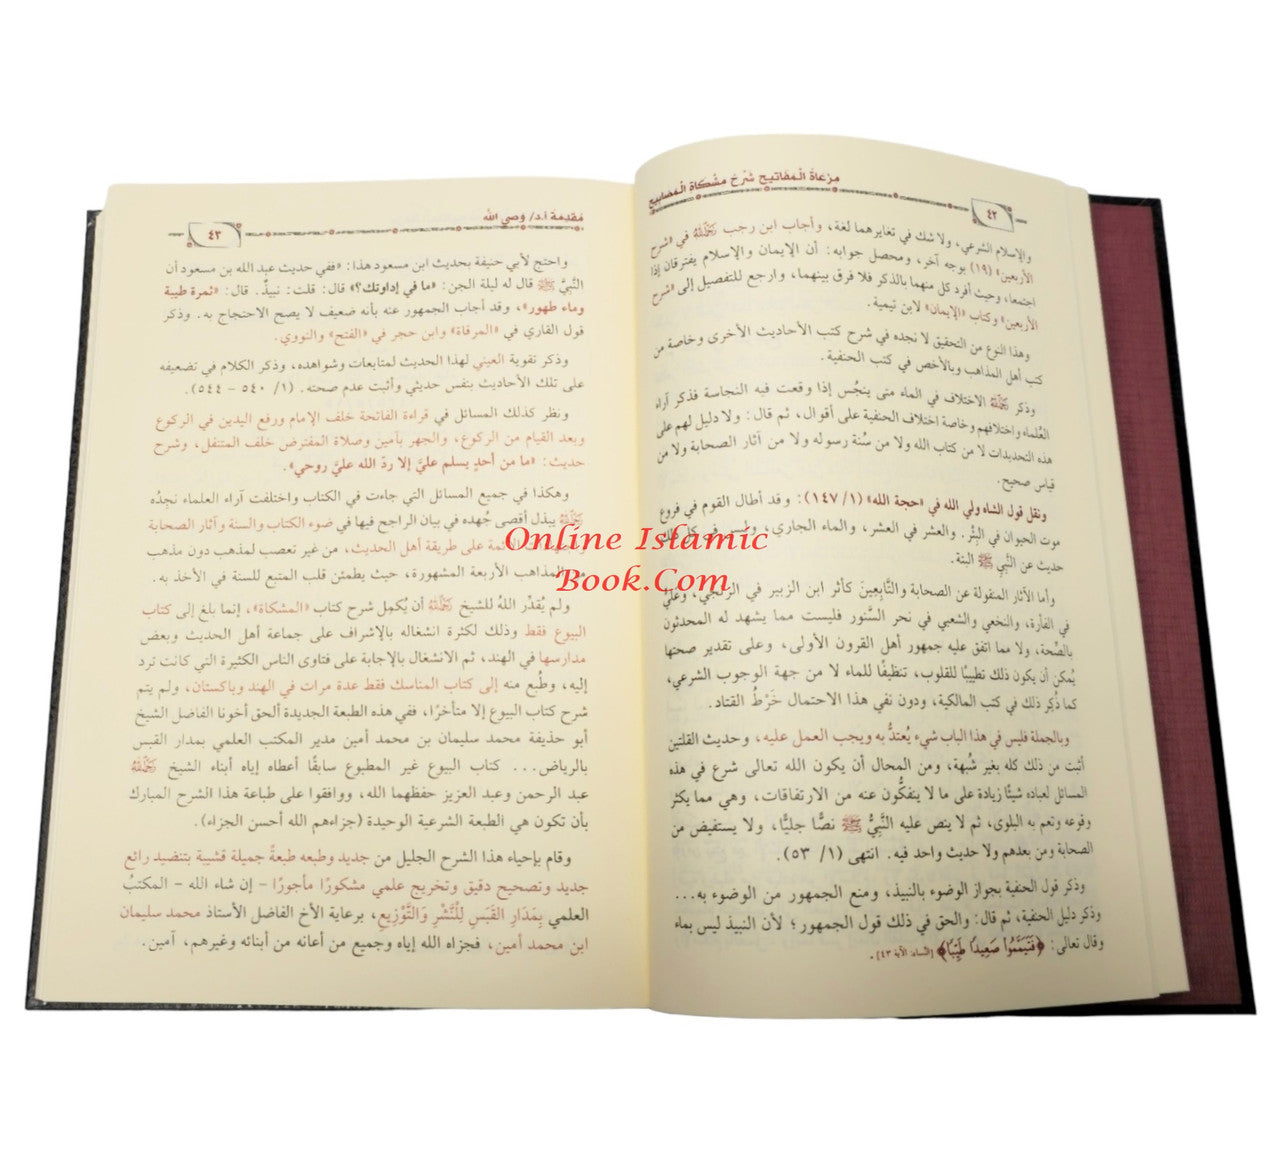 ٤٢
مرعاة المفاتيح شرح مشكاة المصابيح
والإسلام الشرعي، ولا شك في تغايرهما لغة، وأجاب ابن رجب رحمه الله في «شرح
الأربعين» (١٩) بوجه آخر، ومحصل جوابه: أن الإيمان والإسلام يفترقان إذا
اجتمعا، وحيث أفرد كل منهما بالذكر فلا فرق بينهما، وارجع للتفصيل إلى «شرح
الأربعين» وكتاب «الإيمان» لابن تيمية.
وهذا النوع من التحقيق لا نجده في شرح كتب الأحاديث الأخرى وخاصة من
كتب أهل المذاهب وبالأخص في كتب الحنفية.
وذكر رحمه الله الاختلاف في الماء متى ينجُس إذا وقعت فيه النجاسة فذكر آراء
العُلماء واختلافهم وخاصة اختلاف الحنفية على أقوال، ثم قال: ولا دليل لهم على
هذه التحديدات لا من كتاب الله ولا من سُنة رسوله ولا من آثار الصحابة ولا من
قياس صحيح.
ونقل قول الشاه ولي الله في «حجة الله» (١/ ١٤٧): وقد أطال القوم في فروع
موت الحيوان في البئر. والعشر في العشر، والماء الجاري، وليس في كل ذلك
حديث عن النَّبي ﷺ البتة.
وأما الآثار المنقولة عن الصحابة والتَّابِعِينَ كأثر ابن الزبير في الزنجي، وعليّ
في الفأرة، والنخعي والشعبي في نحر السَّنور فليست مما يشهد له المحدثون
بالصِّحة، ولا مما اتفق عليه جمهور أهل القرون الأولى، وعلى تقدير صحتها
يُمكن أن يكون ذلك تطييبًا للقلوب، تنظيفًا للماء لا من جهة الوجوب الشرعي،
كما ذُكِرَ ذلك في كتب المالكية، ودون نفي هذا الاحتمال خَرْطُ القتاد.
وبالجملة فليس في هذا الباب شيء يُعتدُّ به ويجب العمل عليه، وحديث القلتين
أثبت من ذلك كله بغير شُبهة، ومن المحال أن يكون الله تعالى شرع في هذه
المسائل لعباده شيئًا زيادة على ما لا ينفكُّون عنه من الارتفاقات، وهي مما يكثر
وقوعه وتعم به البلوى، ثم لا ينص عليه النَّبيُّ ﷺ نصًّا جليًّا، ولا يستفيض من
الصحابة ومن بعدهم ولا حديث واحد فيه. انتهى (١/ ٥٣).
وذكر قول الحنفية بجواز الوضوء بالنبيذ، ومنع الجمهور من الوضوء به...
وذكر دليل الحنفية، ثم قال: والحق في ذلك قول الجمهور؛ لأن النبيذ ليس بماء
وقال تعالى: ﴿فَتَيَمَّمُوا صَعِيدًا طَيِّبًا﴾ [النساء: الآية ٤٣].
مقدمة أ.د/ وصي الله
٤٣
واحتج لأبي حنيفة بحديث ابن مسعود هذا: «ففي حديث عبد الله بن مسعود أن
النَّبيَّ ﷺ قال له ليلة الجن: «ما في إداوتك؟» قال: قلت: نبيذٌ. قال: «ثمرة طيبة
وماء طهور»، وقد أجاب الجمهور عنه بأنه ضعيف لا يصح الاحتجاج به. وذكر
قول القاري في «المرقاة» وابن حجر في «الفتح» والنووي.
وذكر تقوية العيني لهذا الحديث لمتابعات وشواهده، وذكر الكلام في تضعيفه
على تلك الأحاديث بنفس حديثي وأثبت عدم صحته. (١/ ٥٤٠ - ٥٤٤).
ونظر كذلك المسائل في قراءة الفاتحة خلف الإمام ورفع اليدين في الركوع
وبعد القيام من الركوع، والجهر بآمين وصلاة المفترض خلف المتنفل، وشرح
حديث: «ما من أحدٍ يسلم عليَّ إلا ردّ الله عليَّ روحي».
وهكذا في جميع المسائل التي جاءت في الكتاب واختلفت آراء العلماء نجدُه
رحمه الله يبذل أقصى جُهده في بيان الراجح فيها في ضوء الكتاب والسنة وآثار الصحابة
الأئمة على طريقة أهل الحديث، من غير تعصب لمذهب دون مذهب
من المذاهب الأربعة المشهورة، حيث يطمئن قلب المتبع للسنة في الأخذ به.
ولم يُقدِّر اللهُ للشيخ رحمه الله أن يُكمِل شرح كتاب «المشكاة»، إنما بلغ إلى كتاب
البيوع فقط وذلك لكثرة انشغاله بالإشراف على جماعة أهل الحديث وبعض
مدارسها في الهند، ثم الانشغال بالإجابة على فتاوى الناس الكثيرة التي كانت ترد
إليه، وطُبع منه إلى كتاب المناسك فقط عدة مرات في الهند وباكستان، ولم يتم
شرح كتاب البيوع إلا متأخرًا، ففي هذه الطبعة الجديدة ألحق أخونا الفاضل الشيخ
أبو حذيفة محمد سليمان بن محمد أمين مدير المكتب العلمي بمدار القبس
بالرياض... كتاب البيوع غير المطبوع سابقًا أعطاه إياه أبناء الشيخ رحمه الله
عبد الرحمن وعبد العزيز حفظهما الله، ووافقوا على طباعة هذا الشرح المبارك
بأن تكون هي الطبعة الشرعية الوحيدة (جزاءهم الله أحسن الجزاء).
وقام بإحياء هذا الشرح الجليل من جديد وطبعه طبعةً جميلة قشيبة بتنضيد رائع
جديد وتصحيح دقيق وتخريج علمي مشكورًا مأجورًا - إن شاء الله - المكتبُ
العلمي بِمَدَارِ القَبَسِ لِلنَّشْرِ وَالتَّوْزِيعِ، برعاية الأخ الفاضل الأستاذ محمد سليمان
ابن محمد أمين، فجزاه الله إياه وجميع من أعانه من أبنائه وغيرهم، آمين.
Online Islamic
Book.Com